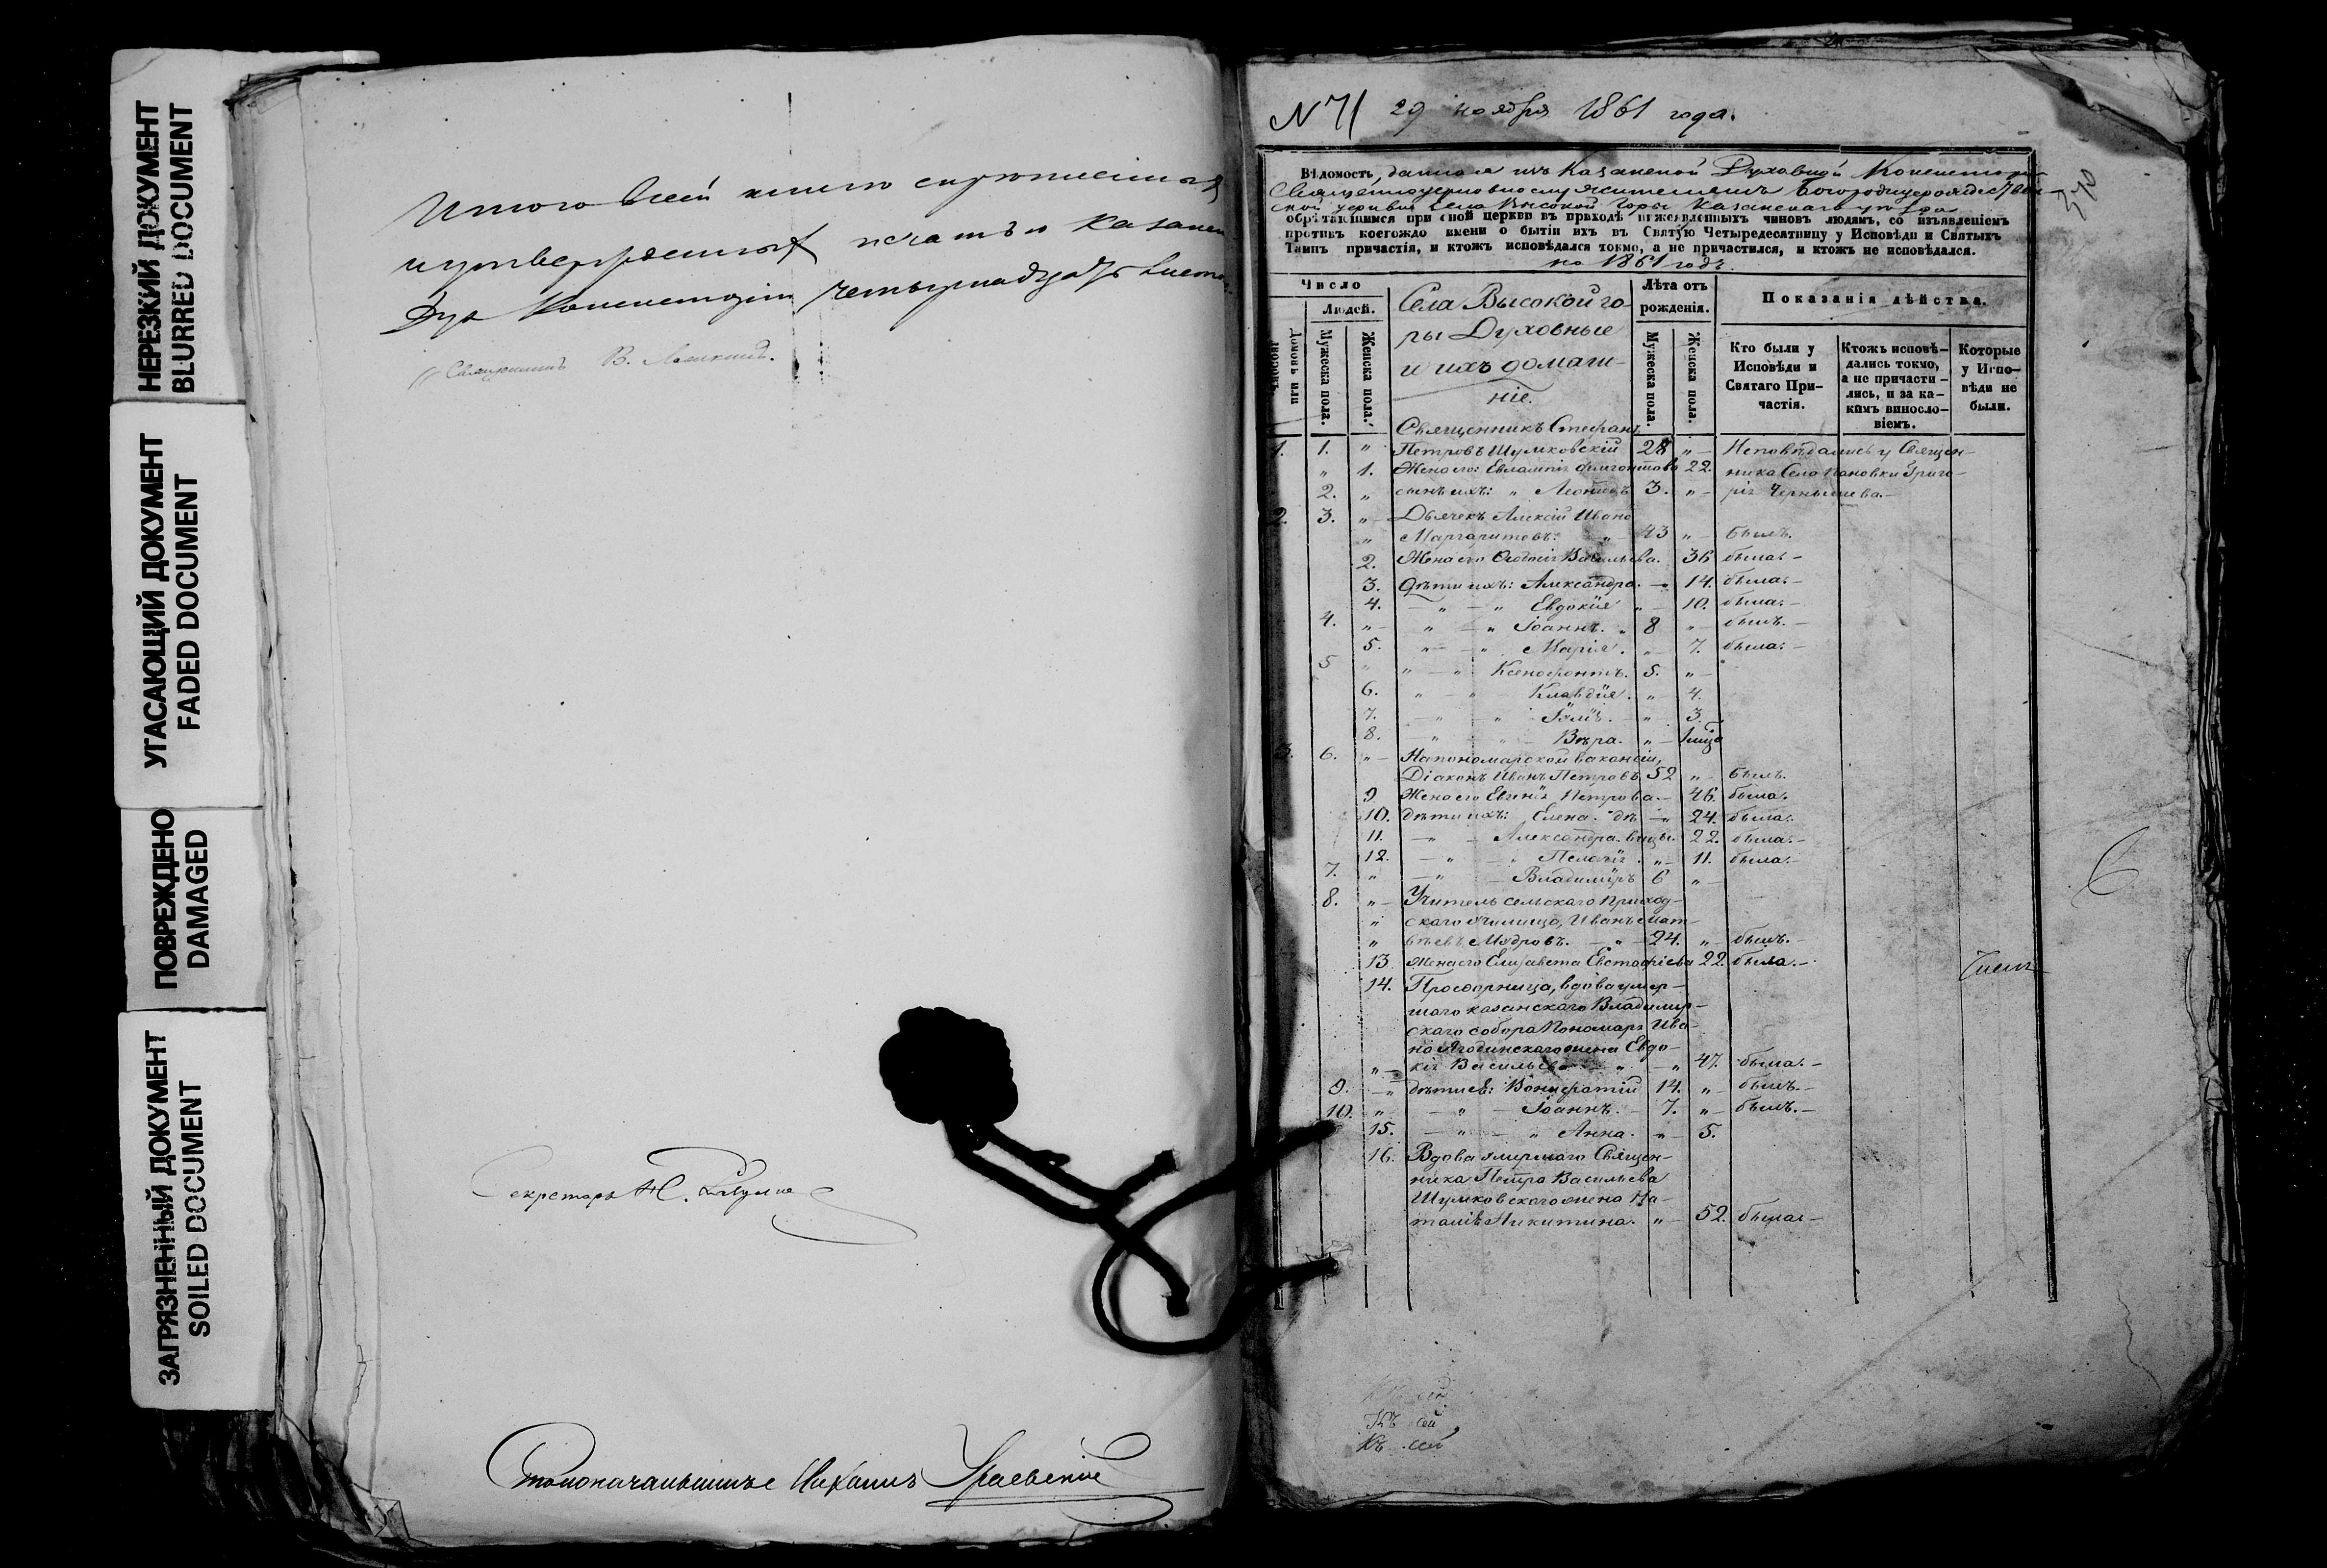 НЕРЕЗКИЙ ДОКУМЕНТ
BLURRED DOCUMENT
УГАСАЮЩИЙ ДОКУМЕНТ
FADED DOCUMENT
ПОВРЕЖДЕНО
DAMAGED
ЗАГРЯЗНЕННЫЙ ДОКУМЕНТ
SOILED DOCUMENT
Итого всей книги
печатью Казанск
Дух Консисторіи четырнадцать листо
Священникъ В.
Секретарь
Столоначальникъ Михаилъ
N 71 29 ноября 1861 года.
370
Вѣдомость, данная изъ Казанской Духовной Консисторіи
Священноцерковнослужителямъ Богородицерождествен-
ской церкви села Высокой Горы Казанскаго уѣзда
обрѣтающимся при оной церкви въ приходѣ нижеявленныхъ чиновъ людямъ, со изъявленіемъ
противъ коегождо имени о бытіи ихъ въ Святую Четыредесятницу у Исповѣди и Святыхъ
Таинъ причастія, и ктожъ исповѣдался токмо, а не причастился, и ктожъ не исповѣдался.
на 1861 годъ.
Число
Людей.
Домовъ или
Мужеска пола.
Женска пола.
Села Высокой го-
ры Духовные
и ихъ домаш-
ніе.
Лѣта отъ
рожденія.
Мужеска пола.
Женска пола.
Показанія дѣйства.
Кто были у
Исповѣди и
Святаго При-
частія.
Ктожъ исповѣ-
дались токмо,
а не причасти-
лись, и за ка-
кимъ виносло-
віемъ.
Которые
у Испо-
вѣди не
были.
Священникъ Стефанъ
1. 1. " Петровъ Шумковскій 28 " Исповѣдались у Священ-
" 1. Жена его: Евлампія 22. ника Села Пановки Григо-
2. " сынъ ихъ: " Леонидъ 3. " рія Чернышева.-
2. 3. " Дьячекъ Алексій Ивано
" Маргаритовъ: " 43 " былъ.
2. Жена его Васильева. 36 была.-
3. Дѣти ихъ: Александра. 14. была.-
4. " " Евдокія " 10. была.-
4. " " " Іоаннъ. " 8 " былъ.-
5. " " Марія. " 7. была.-
5 " " " Ксенофонтъ. 5. "
6. " " Клавдія. " 4.
7. " " Юлія. " 3.
8. " Вѣра. " 1 мѣся
3. 6. " На пономарской вакансіи,
Діаконъ Иванъ Петровъ 52 " былъ.
9 Жена его Евгенія Петрова.- 46. была.
10. дѣти ихъ: Елена. дѣ " 24. была.
11. " Александра. вицы. 22. была.-
12. " " Пелагія. " 11. была.-
7. " " Владиміръ 6 "
8. " Учитель сельскаго приход-
" скаго училища, Иванъ Мат-
" вѣевъ Мудровъ. " 24. " былъ.-
13. Жена его Елизавета Евстафіева 22. была.-
14. Просфорница, вдова умер-
шаго казанскаго Владимир-
скаго собора Пономаря Ива-
на Ягодинскаго жена Евдо-
" кія Васильева " " 47. была.-
9. " дѣти ея: Вонифатій 14. " былъ.-
10. " " Іоаннъ. 7. " былъ.-
15. " " Анна. " 5.
16. Вдова умершаго Священ-
ника Петра Васильева
Шумковскаго жена На-
талія Никитина. " 52. была.-
Къ сей
Къ сей